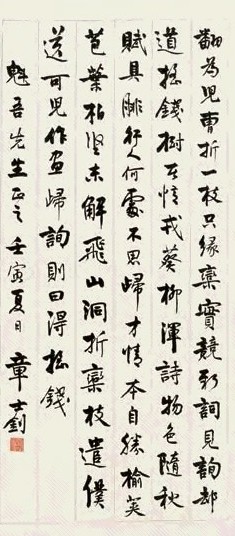 翻為児曹折一枝只緣棄實競新詞見詢却
道搖錢樹至情戎葵柳渾詩物色隨秋
賦具腓行人何處不思歸才情本自勝榆莢
葉枯堅未解飛山洞折棄枝遣僕
送可児作画歸詢則曰得搖錢
魁吾先生正之壬寅夏日章士釗